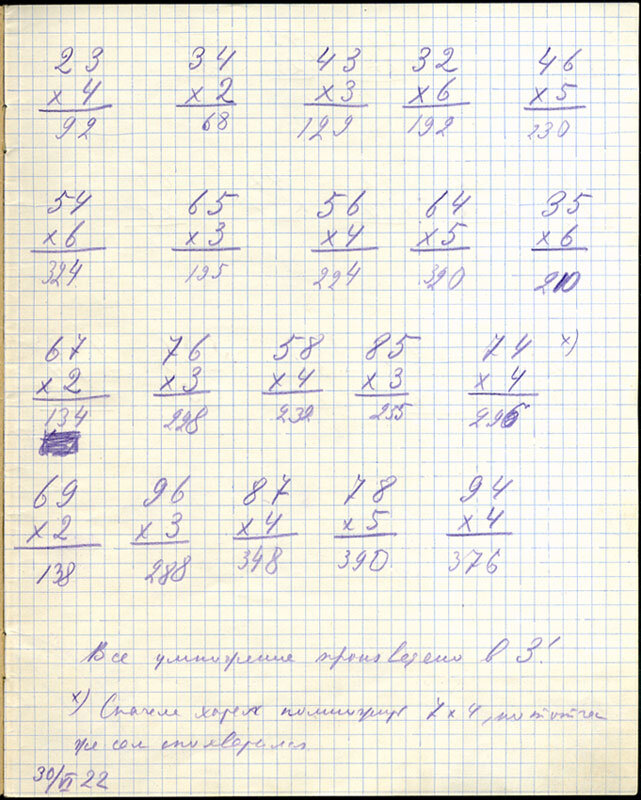 23 34 43 32 46
x 4 x 2 x 3 x 6 x 5
92 68 129 192 230
54 65 56 64 35
x 6 x 3 x 4 x 5 x 6
324 195 224 320 210
67 76 58 85 74 x)
x 2 x 3 x 4 x 3 x 4
134 228 232 255 296
69 96 87 78 94
x 2 x 3 x 4 x 5 x 4
138 288 348 390 376
Все умножение произведено в 3'
x) Сначала хотел помножить 7 x 4, но тотчас
же сам спохватился.
30/VI 22